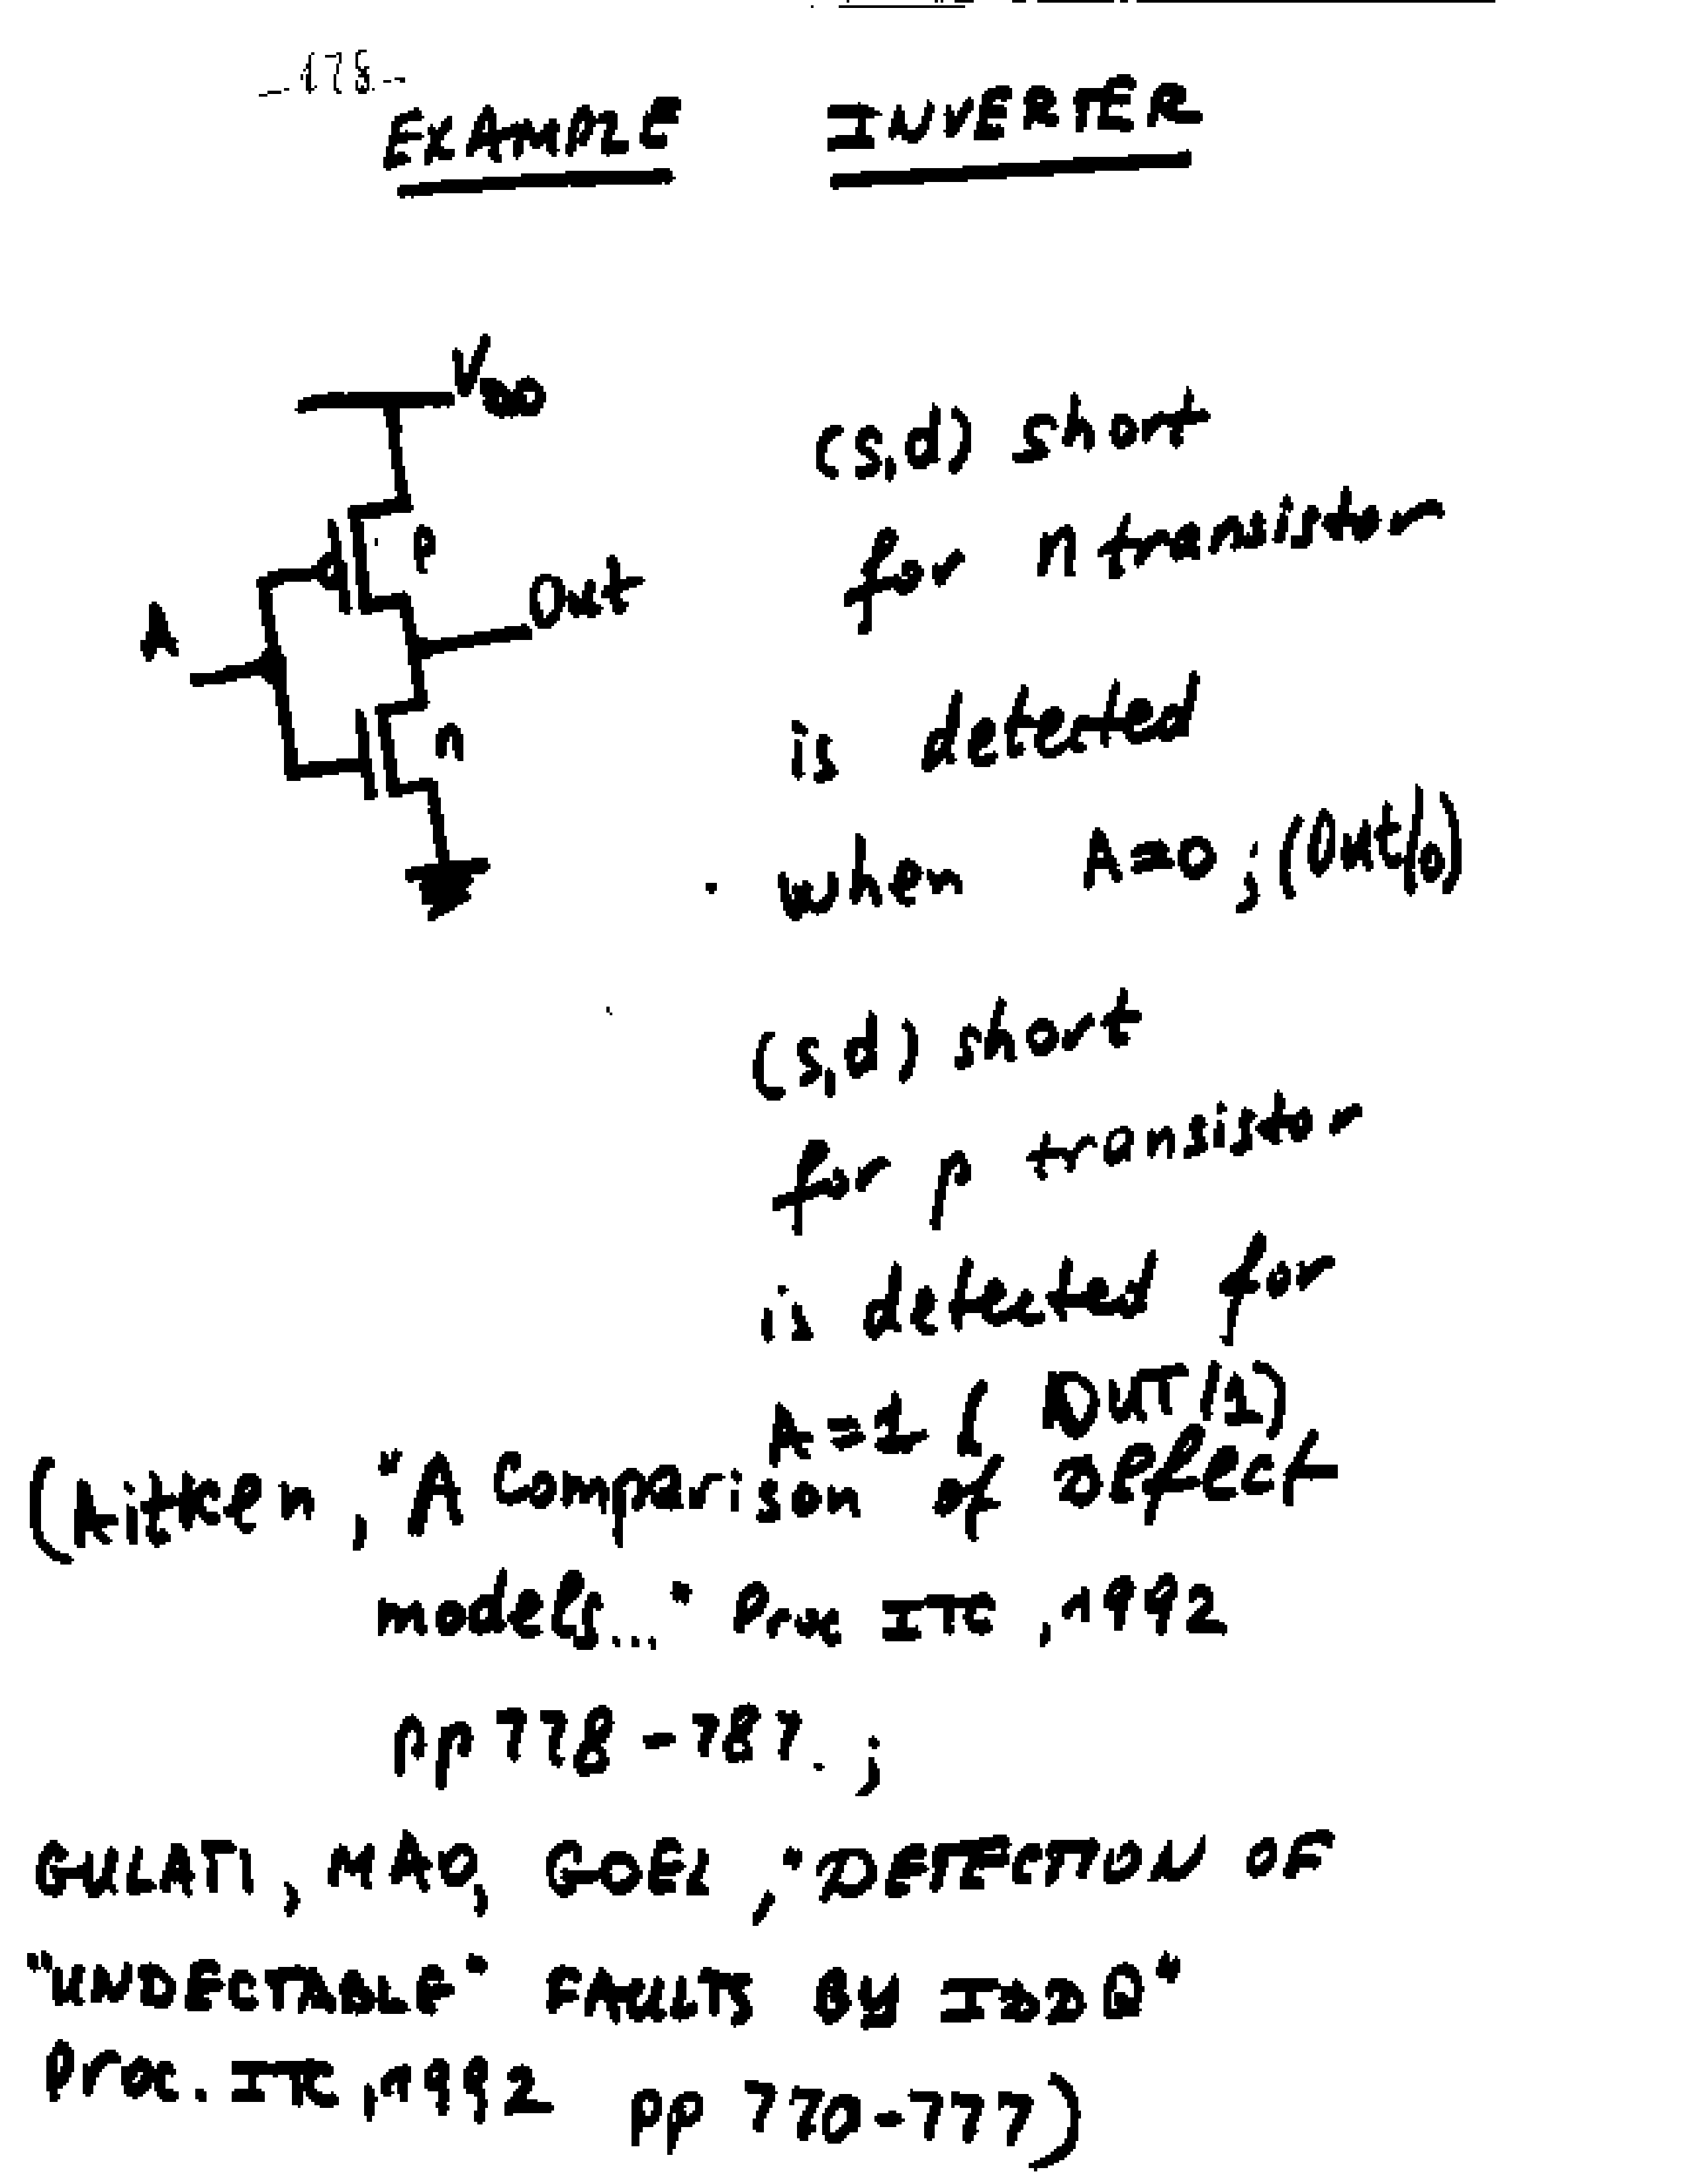 -178-
EXAMPLE INVERTER
VDD
(s,d) short
p
for n transistor
A
Out
n
is detected
when A=0; (Out/0)
(s,d) short
for p transistor
is detected for
A=1 ( OUT/1)
(Aitken, "A Comparison of Defect
models..." Proc ITC, 1992
pp 778-787. ;
GULATI, MAO, GOEL, "DETECTION OF
"UNDECTABLE" FAULTS BY IDDQ"
Proc. ITC, 1992 pp 770-777)